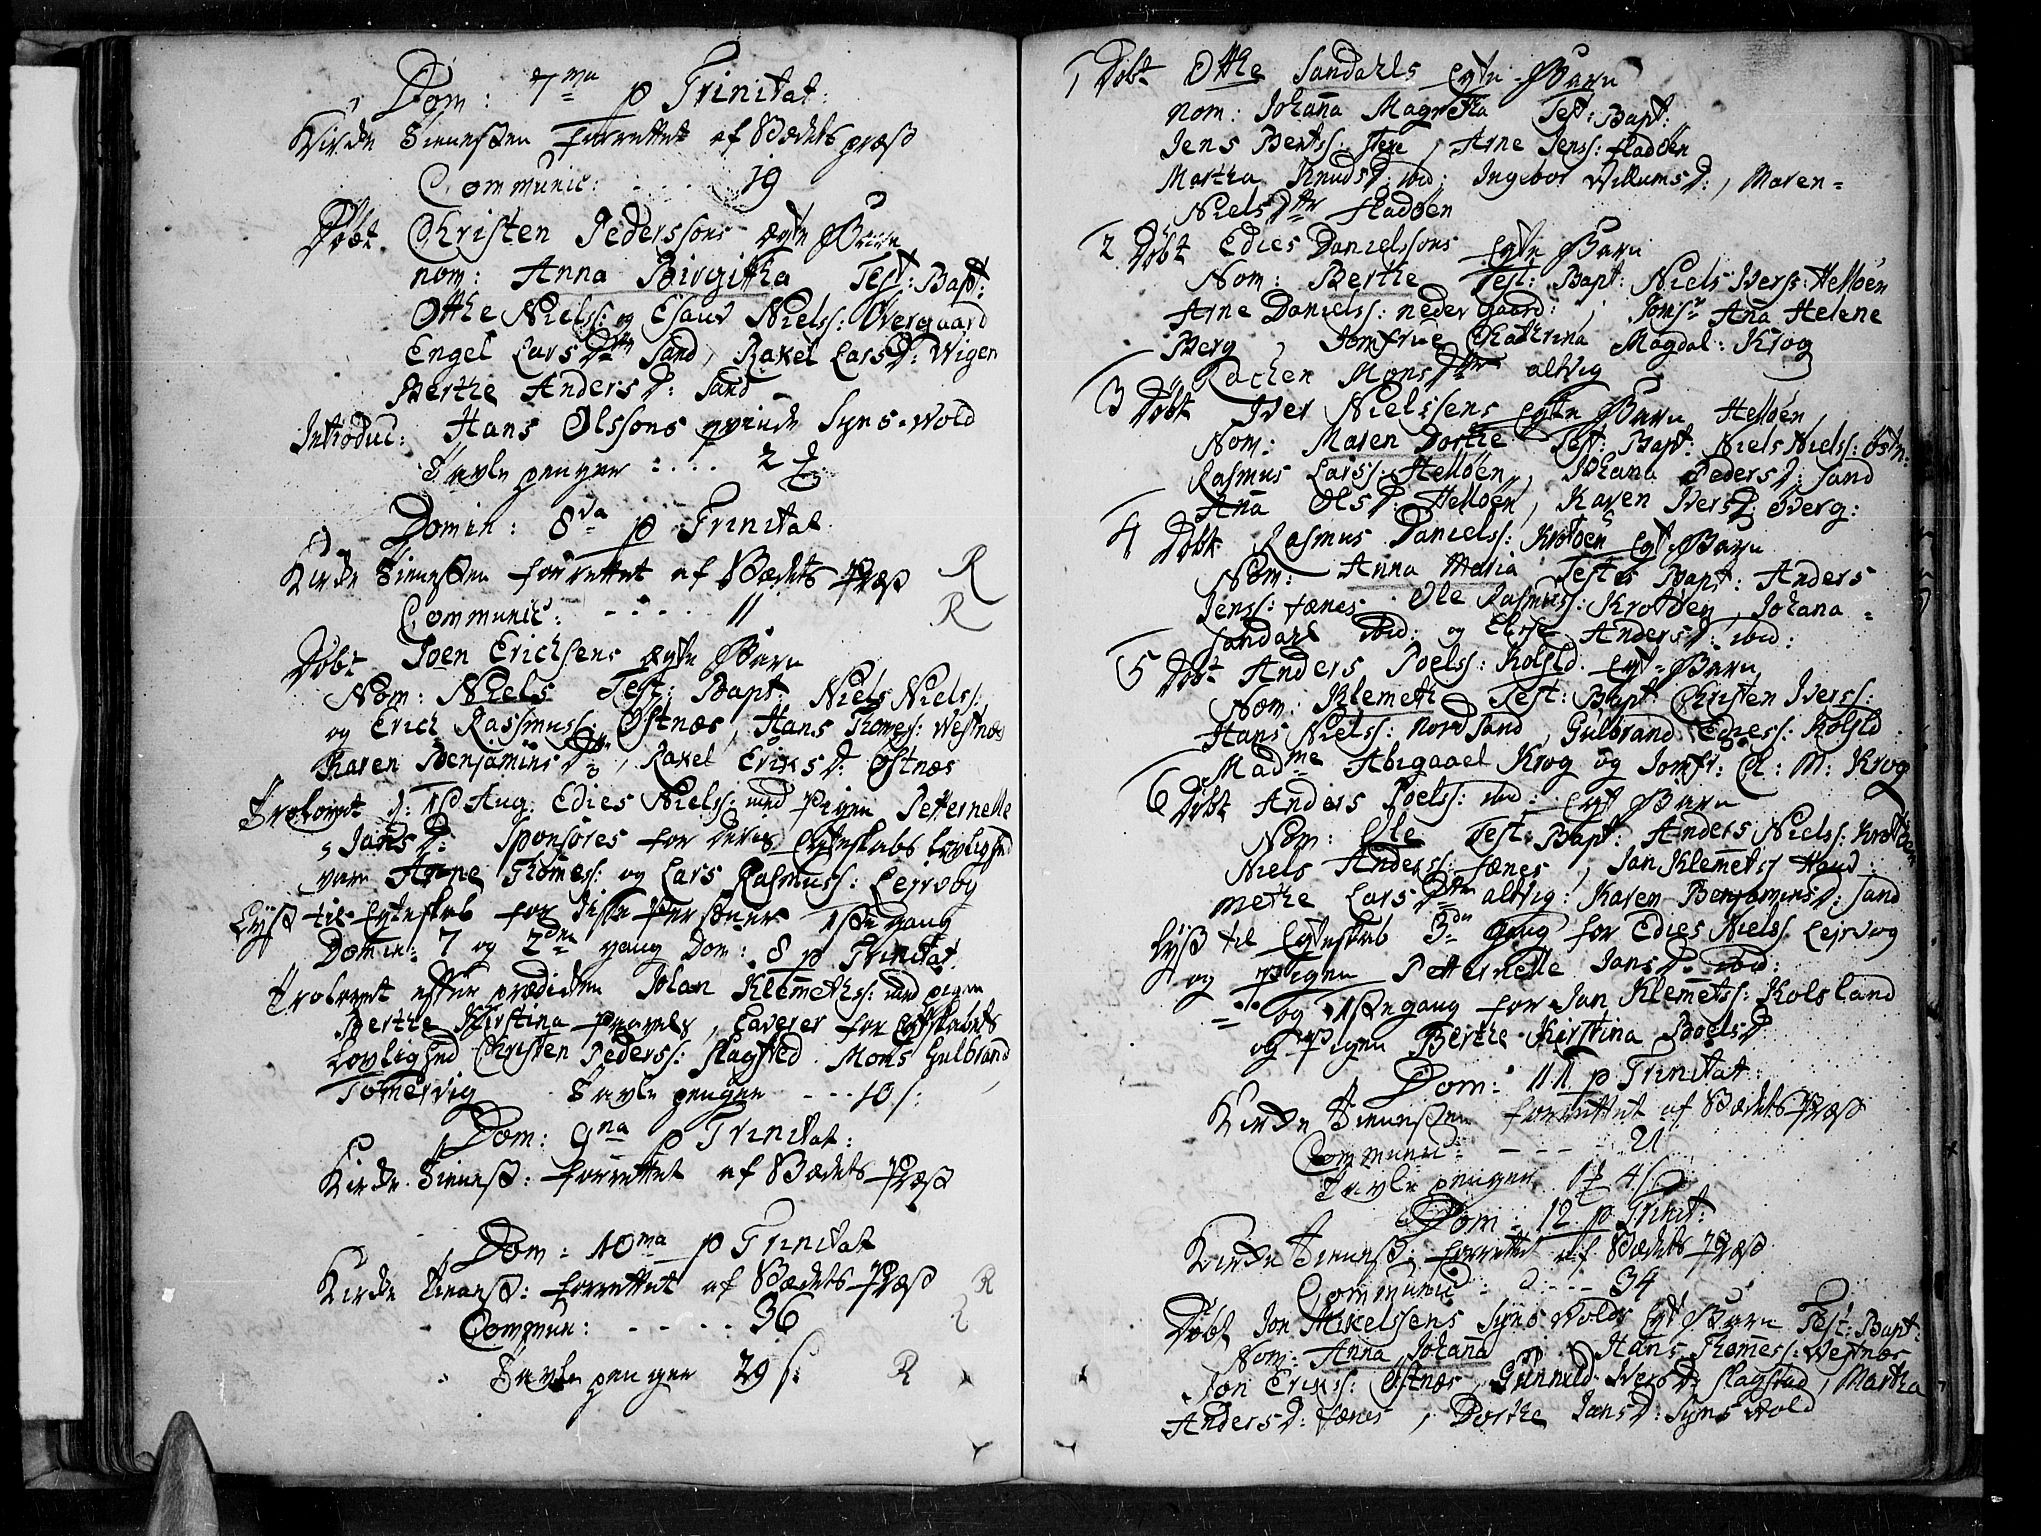 Dom: 7ma p Trinitat:
Kirke Tienesten forrettet af Stædets præst
Communic: - - - - 19
Døbt Christen Pederssøns ægte Barn
nom: Anna Birgitha Test: Bapt:
Otthe Nielss: og Esaus Nielss: Øvergaard
Engel Lars Dttr Sand, Raxel Lars D: Wigen
Berthe Anders D: Sand
Introduc: Hans Olssøns qvinde Syns-Wold
Tavle penger : . . . 2
Domin: 8va p Trinitat
Kirke Tienesten forrettet af Stædets Præst R
Communic: - - - - 11 R
Døbt Joen Erichsens ægte Barn
Nom: Niels Test: Bapt: Niels Nielss:
og Erich Rassmuss: Østnæs, Hans Thomess: Westnæs
Karen Benjamins Dtr, Raxel Erixs D: Østnæs
Trolovet d: 1st Aug: Edies Nielss: med Pigen Peternelle
Jans D: Sponsores for deres Egteskabs lovlighed
vare Arne Thomess: og Lars Rasmuss: Lejrvog
Lyst til Egteskab for disse Personer 1ste gang
Domin: 7 og 2den gang Dom: 8 p Trinitat.
Trolovet efter prædiken Johan Klemethss: med pigen
Berthe Kirstina Povels, Caverer for Egtskabets
Lovlighed Christen Pederss: Slagsted Mons Gulbrand
Tømervig Tavle penger - - - 10 s:
Dom: 9na p Trinitat:
Kirke Tienest: forrettet af Stædets Præst
Dom: 10ma p Trinitat
Kirke Tienest: forrettet af Stædets Præst R
Commun: - - - - : 36
Tavle penger 29 s: R
1 Døbt Otthe Sandahls Egte Barn
Nom: Johana Magretha Test: Bapt:
Jens Bentss: , Arne Jenss: Fladøen
Martha Knuds D: ibid: Ingebor Willums D:, Maren=
Niels Dttr Fladøen
2 Døbt Edies Danielssøns Egte Barn
Nom: Berthe Test: Bapt: Niels Iverss: Helløen
Arne Daniels: neder Gaard: , Jomfr Ana Helene
Berg , Jomfrue Chathrina Magdal: Krog
Rachen Mons Dttr alvig
3 Døbt Iver Nielssens Egte Barn Helløen
Nom: Maren Dorthe Test: Bapt: Niels Nielss: Østn:
Rasmus Larss: Helløen, Johana Peders D: Sand
Ana Ols D: Helløen, Karen Ivers D: Øverg:
4 Døbt Rasmus Danielss: Krotøen Egt Barn
Nom: Anna Maria Testes Bapt: Anders
Jenss: Fænes Ole Rasmuss: Krotøen, Johana=
Sandahl ibid: og Else Anders D: ibid:
5 Døbt Anders Poelss: Kolsld: Egt-Barn
Nom: Klemeth Test: Bapt: Christen Iverss:
Hans Nielss: Nord Sand, Gulbrand Ediess: Kolsld
Madme Abigaael Krog og Jomfr: C: M: Krog
6 Døbt Anders Poelss: ibid: Egt Barn
Nom: Ole Test: Bapt: Anders Nielss: Krotøen
Niels Anderss: Fænes, Jan Klemetss Haud:
Methe Lars Dttr alvig: Karen Benjamins D: Sand
Lyst til Egteskab 3de gang for Edies Nielss: Lejrvog
og Pigen Petternelle Jans D: ibid:
og 1ste gang for Jan Klemetss: Kolsland
og Pigen Berthe Kirstina Poels D
Dom: 11 p Trinitat:
Kirke Tienesten forrettet af Stædets Præst
Communic: - - - - 21
Tavle penger 1 4 s
Dom: 12 p Trinit:
Kirke Tienest: forrettet af Stædets Præst
Communic : - - - - 34
Døbt Jon Mikelssens Syns Wolds Egt Barn Test: Bapt:
Nom: Anna Johana Hans Thomess: Westnæs
Jon Erixs: Østnæs, Gunnild Ivers D: Slagstad, Martha
Anders D: Fænes, Dorthe Jans D: Syns Wold